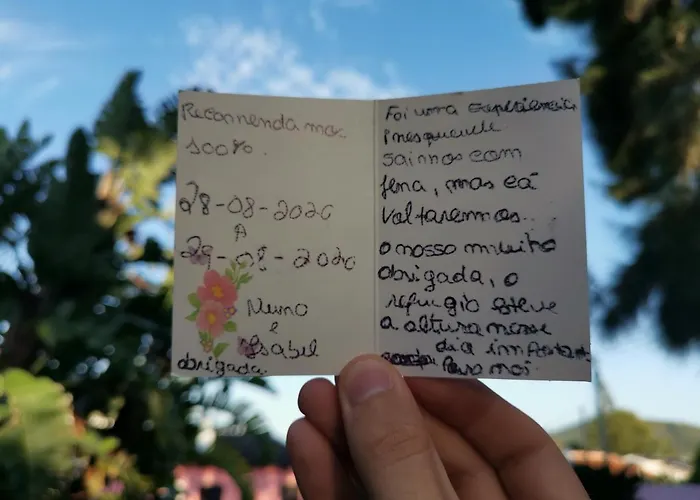 Recomenda mos
100%.
28-08-2020
A
29-08-2020
Nuno
e
Isabel
obrigada.
Foi uma experiência
inesquecivel
saimos com
pena, mas cá
voltaremos..
o nosso muito
obrigada, o
refugio esteve
a altura nesse
dia importante
para nós.